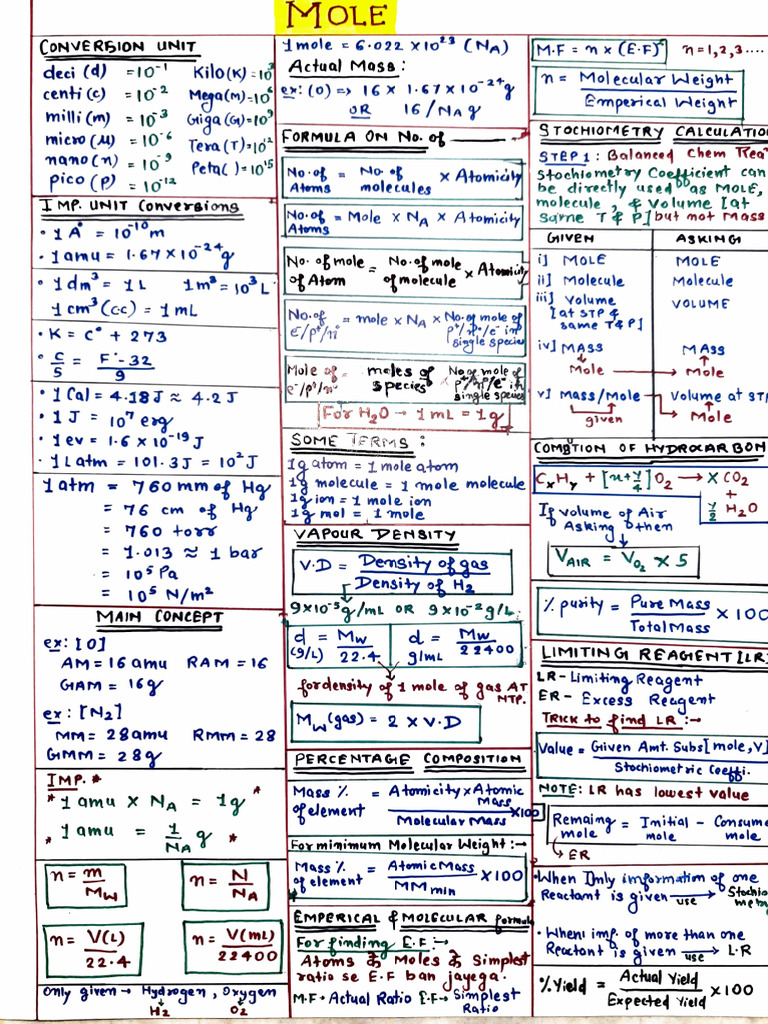 MOLE
CONVERSION UNIT
deci (d) = 10⁻¹ Kilo(K) = 10³
centi (c) = 10⁻² Mega(m) = 10⁶
milli (m) = 10⁻³ Giga(G) = 10⁹
micro (μ) = 10⁻⁶ Tera(T) = 10¹²
nano(n) = 10⁻⁹ Peta( ) = 10¹⁵
pico (p) = 10⁻¹²
IMP. UNIT Conversions
• 1 A° = 10⁻¹⁰ m
• 1 amu = 1.67 × 10⁻²⁴ g
• 1 dm³ = 1 L 1m³ = 10³ L
1 cm³ (cc) = 1 mL
• K = C° + 273
• C/5 = F-32/9
• 1 Cal = 4.18J ≈ 4.2 J
• 1 J = 10⁷ erg
• 1 ev = 1.6 × 10⁻¹⁹ J
• 1 Latm = 101.3J = 10² J
1 atm = 760 mm of Hg
= 76 cm of Hg
= 760 torr
= 1.013 ≈ 1 bar
= 10⁵ Pa
= 10⁵ N/m²
MAIN CONCEPT
ex: [O]
AM = 16 amu RAM = 16
GAM = 16g
ex: [N₂]
MM = 28 amu RMM = 28
GMM = 28g
IMP. *
* 1 amu × N_A = 1g *
* 1 amu = 1/N_A g *
n = m/M_W n = N/N_A
n = V(L)/22.4 n = V(mL)/22400
Only given → Hydrogen, Oxygen
↓H₂ ↓O₂
1 mole = 6.022 × 10²³ (N_A)
Actual Mass:
ex: (O) => 16 × 1.67 × 10⁻²⁴ g
OR 16/N_A g
FORMULA ON No. of ______
No. of Atoms = No. of molecules × Atomicity
No. of Atoms = Mole × N_A × Atomicity
No. of mole of Atom = No. of mole of molecule × Atomicity
No. of e⁻/p⁺/n° = mole × N_A × No. of mole of p⁺/n°/e⁻ in single species
Mole of e⁻/p⁺/n° = moles of species × No of mole of p⁺/n°/e⁻ in single species
For H₂O → 1 mL = 1g
SOME TERMS:
1g atom = 1 mole atom
1g molecule = 1 mole molecule
1g ion = 1 mole ion
1g mol = 1 mole
VAPOUR DENSITY
V.D = Density of gas/Density of H₂
9×10⁻⁵g/mL OR 9×10⁻²g/L
d (g/L) = Mw/22.4 d g/mL = Mw/22400
for density of 1 mole of gas AT NTP.
M_W (gas) = 2 × V.D
PERCENTAGE COMPOSITION
Mass % of element = Atomicity × Atomic Mass/Molecular Mass × 100
For minimum Molecular Weight :→
Mass % of element = Atomic Mass/MM min × 100
EMPERICAL & MOLECULAR formula
For finding E.F :→
Atoms के Moles के Simplest
ratio se E.F ban jayega.
M.F → Actual Ratio E.F → Simplest Ratio
M.F = n × (E.F) n = 1,2,3....
n = Molecular Weight/Emperical Weight
STOCHIOMETRY CALCULATIO
STEP 1: Balanced Chem Rea
Stochiometry Coefficient can
be directly used as MOLE,
molecule, & volume [at
same T & P] but not Mass
GIVEN ASKING
i] MOLE MOLE
ii] Molecule Molecule
iii] Volume VOLUME
[at STP & same T & P]
iv] MASS MASS
↳ Mole → Mole
v] Mass/Mole Volume at ST
given → Mole
COMBTION OF HYDROCARBON
CxHy + [x+y/4]O₂ → x CO₂
+
y/2 H₂O
If volume of Air
Asking then
V_AIR = V_O₂ × 5
% purity = Pure Mass/Total Mass × 100
LIMITING REAGENT [LR]
LR - Limiting Reagent
ER - Excess Reagent
TRICK to find LR :→
Value = Given Amt. Subs [mole, V]/Stochiometric Coeffi.
NOTE: LR has lowest value
Remaing mole = Initial mole - Consume mole
↳ ER
• When Only imformation of one
Reactant is given → use Stochio met
• When imf. of more than one
Reactant is given → use L.R
% Yield = Actual Yield/Expected Yield × 100